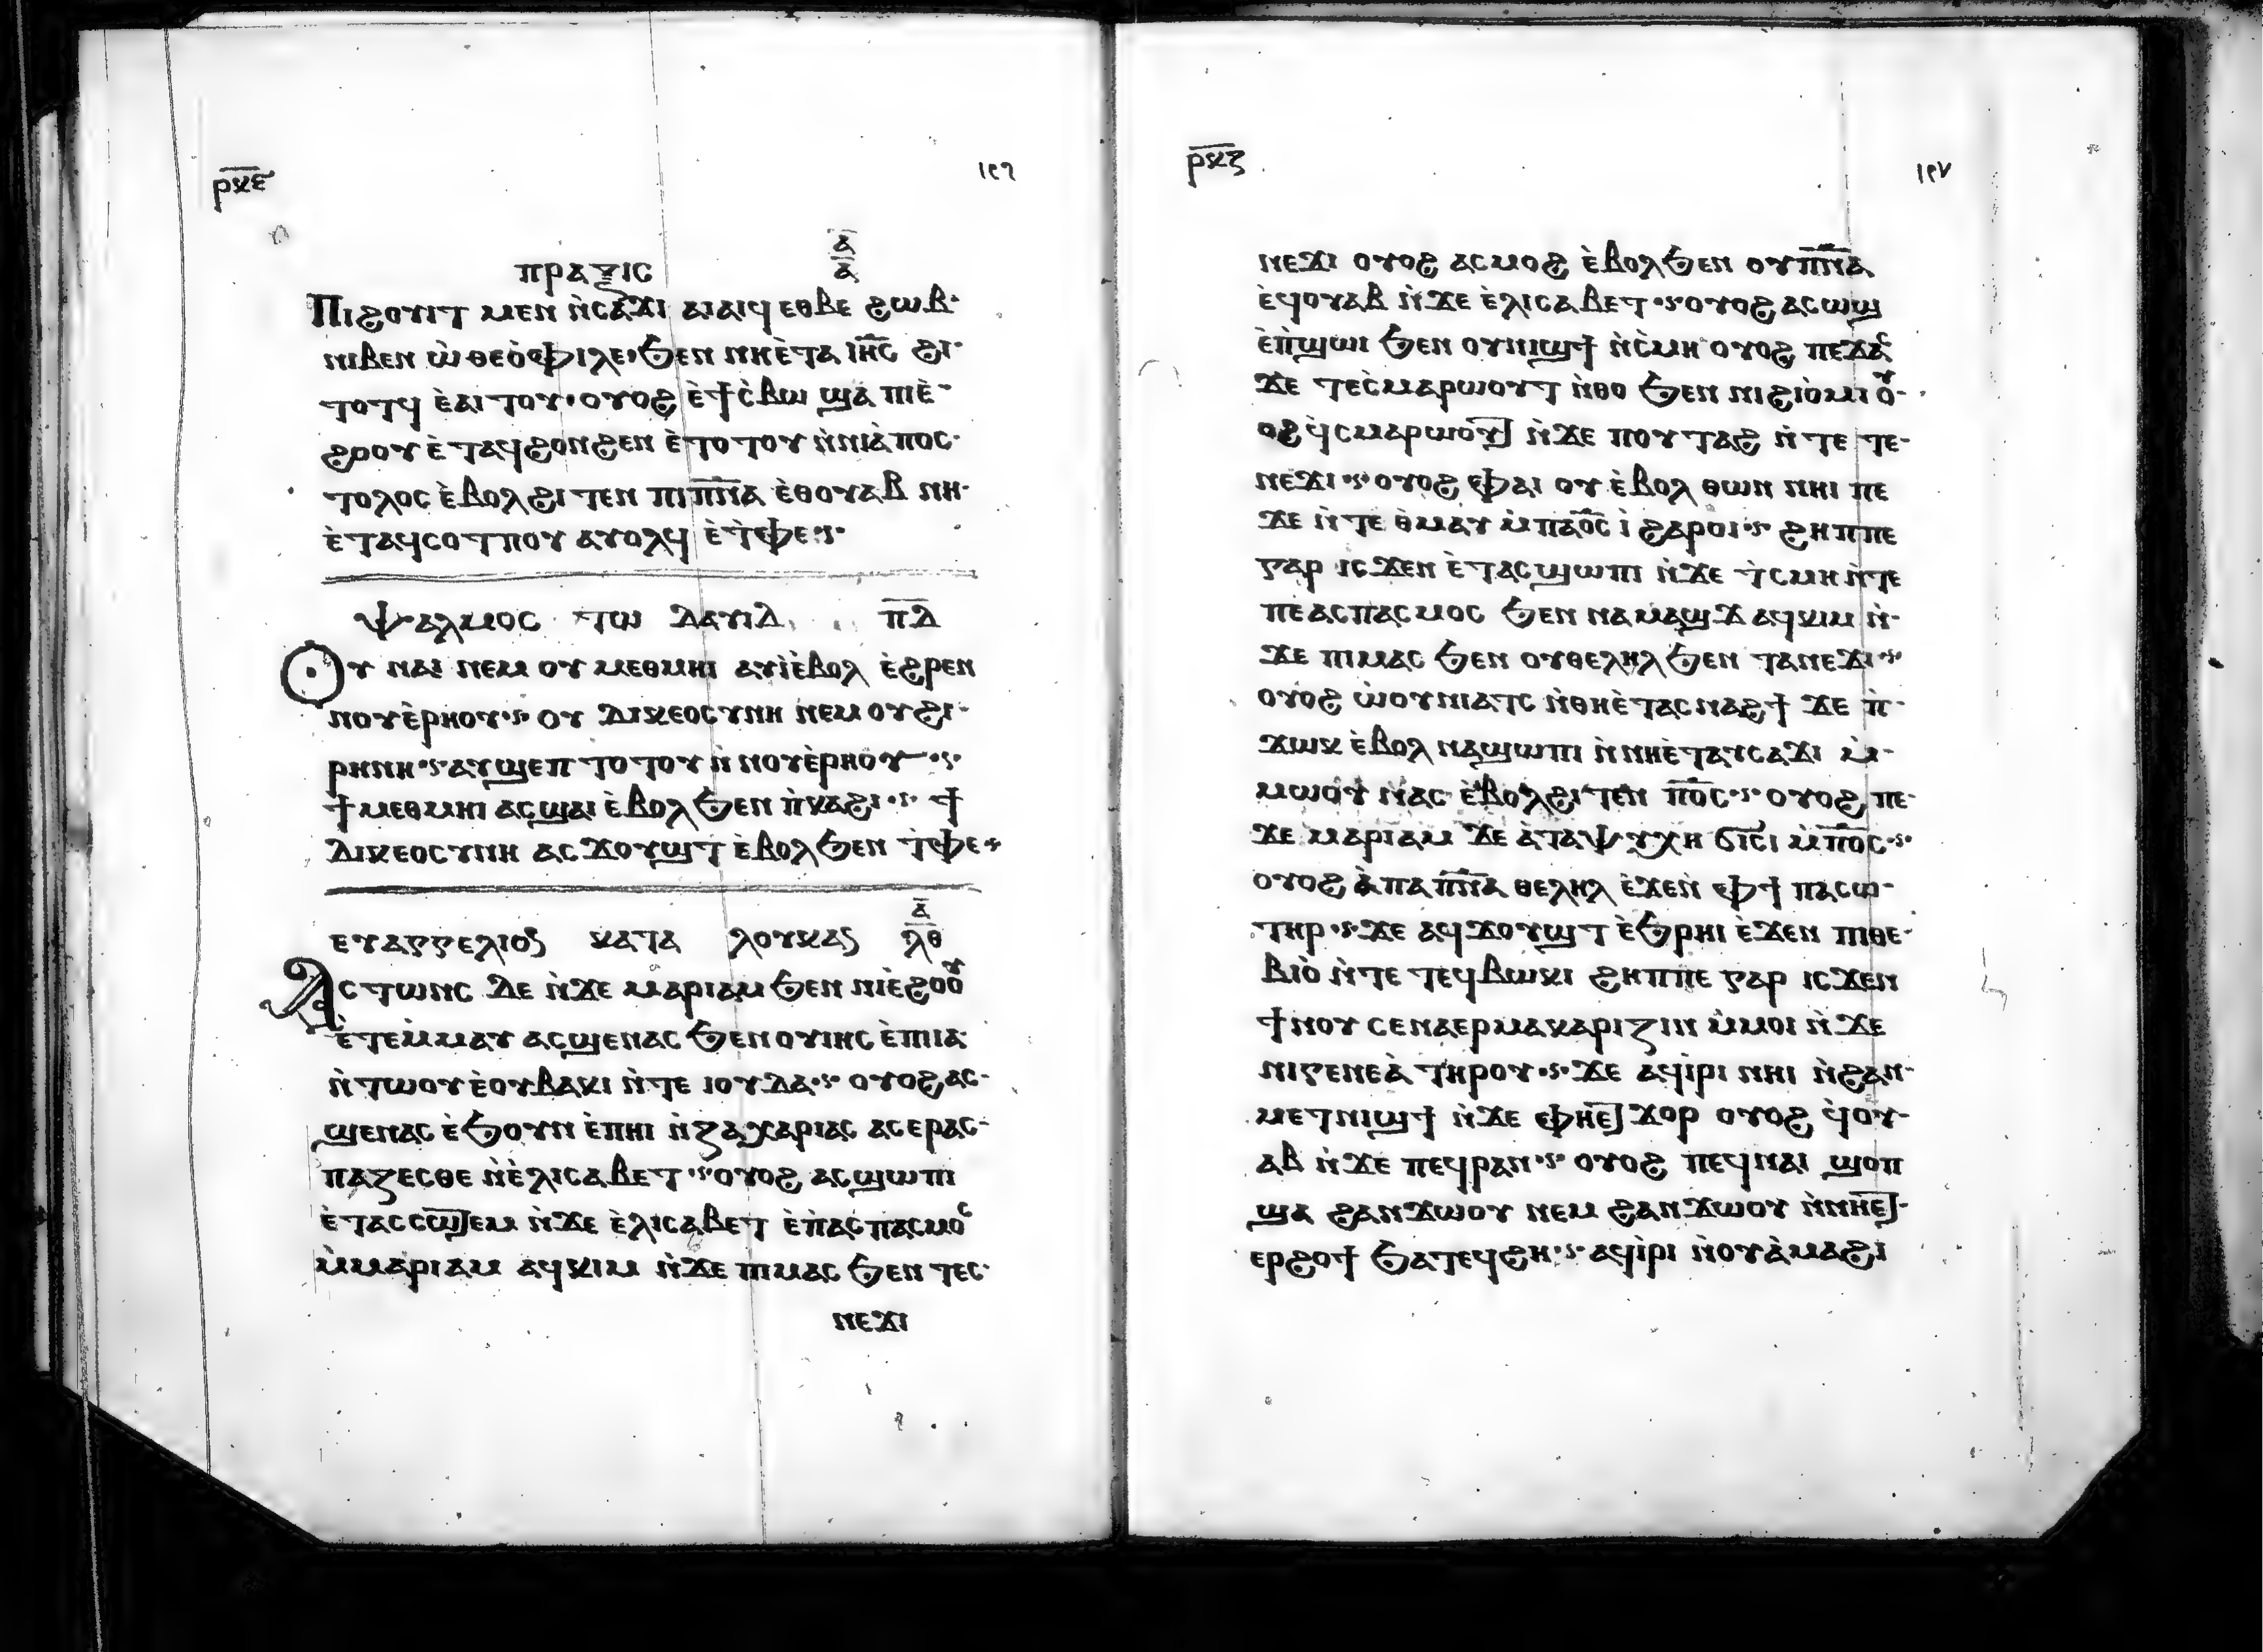 ⲣ̅ⲕ̅ⲉ̅ ١٢٦
ⲡⲣⲁⲝⲓⲥ ⲁ̅ ⲁ̅
Ⲡⲓϩⲟⲩⲓⲧ ⲙⲉⲛ ⲛ̀ⲥⲁϫⲓ ⲁⲓⲁⲓϥ ⲉⲑⲃⲉ ϩⲱⲃ·
ⲛⲓⲃⲉⲛ ⲱ̀ ⲑⲉⲟ̀ⲫⲓⲗⲉ· ϧⲉⲛ ⲛⲏⲉ̀ⲧⲁ ⲓⲏ̅ⲥ̅ ϩⲓ·
ⲧⲟⲧϥ ⲉ̀ⲁⲓⲧⲟⲩ· ⲟⲩⲟϩ ⲉ̀ϯⲥ̀ⲃⲱ ϣⲁ ⲡⲓⲉ̀·
ϩⲟⲟⲩ ⲉ̀ⲧⲁϥϩⲟⲛϩⲉⲛ ⲉ̀ⲧⲟⲧⲟⲩ ⲛ̀ⲛⲓⲁ̀ⲡⲟⲥ·
ⲧⲟⲗⲟⲥ ⲉ̀ⲃⲟⲗϩⲓⲧⲉⲛ ⲡⲓⲡⲛ̅ⲁ̅ ⲉ̀ⲑⲟⲩⲁⲃ ⲛⲏ·
ⲉ̀ⲧⲁϥⲥⲟⲧⲡⲟⲩ ⲁⲩⲟⲗϥ ⲉ̀ⲧ̀ⲫⲉ·
ⲯⲁⲗⲙⲟⲥ ⲧⲱ ⲇⲁⲩⲓⲇ ⲡ̅ⲇ̅
Ⲟⲩ ⲛⲁⲓ ⲛⲉⲙ ⲟⲩ ⲙⲉⲑⲙⲏⲓ ⲁⲩⲓ̀ⲉ̀ⲃⲟⲗ ⲉ̀ϩⲣⲉⲛ
ⲛⲟⲩⲉ̀ⲣⲏⲟⲩ· ⲟⲩ ⲇⲓⲕⲉⲟⲥⲩⲛⲏ ⲛⲉⲙ ⲟⲩϩⲓ·
ⲣⲏⲛⲏ· ⲁⲩϣⲉⲡ ⲧⲟⲧⲟⲩ ⲛ̀ ⲛⲟⲩⲉ̀ⲣⲏⲟⲩ·
ϯⲙⲉⲑⲙⲏⲓ ⲁⲥϣⲁⲓ ⲉ̀ⲃⲟⲗ ϧⲉⲛ ⲡ̀ⲕⲁϩⲓ· ϯ
ⲇⲓⲕⲉⲟⲥⲩⲛⲏ ⲁⲥϫⲟⲩϣⲧ ⲉ̀ⲃⲟⲗ ϧⲉⲛ ⲧ̀ⲫⲉ·
ⲉⲩⲁⲅⲅⲉⲗⲓⲟⲥ ⲕⲁⲧⲁ ⲗⲟⲩⲕⲁⲥ ⲁ̅ ⲗⲑ
Ⲁⲥⲧⲱⲛⲥ ⲇⲉ ⲛ̀ϫⲉ ⲙⲁⲣⲓⲁⲙ ϧⲉⲛ ⲛⲓⲉ̀ϩⲟⲟⲩ
ⲉ̀ⲧⲉⲙ̀ⲙⲁⲩ ⲁⲥϣⲉⲛⲁⲥ ϧⲉⲛ ⲟⲩⲓⲏⲥ ⲉ̀ⲡⲓⲁ·
ⲛ̀ⲧⲱⲟⲩ ⲉ̀ⲟⲩⲃⲁⲕⲓ ⲛ̀ⲧⲉ ⲓⲟⲩⲇⲁ· ⲟⲩⲟϩ ⲁⲥ·
ϣⲉⲛⲁⲥ ⲉ̀ϧⲟⲩⲛ ⲉ̀ⲡⲏⲓ ⲛ̀ⲍⲁⲭⲁⲣⲓⲁⲥ ⲁⲥⲉⲣⲁⲥ·
ⲡⲁⲍⲉⲥⲑⲉ ⲛ̀ⲉ̀ⲗⲓⲥⲁⲃⲉⲧ· ⲟⲩⲟϩ ⲁⲥϣⲱⲡⲓ
ⲉ̀ⲧⲁⲥⲥⲱⲧⲉⲙ ⲛ̀ϫⲉ ⲉ̀ⲗⲓⲥⲁⲃⲉⲧ ⲉ̀ⲡⲁⲥⲡⲁⲥⲙⲟⲥ
ⲙ̀ⲙⲁⲣⲓⲁⲙ ⲁϥⲕⲓⲙ ⲛ̀ϫⲉ ⲡⲓⲙⲁⲥ ϧⲉⲛ ⲧⲉⲥ·
ⲛⲉϫⲓ
ⲣ̅ⲕ̅ⲍ̅ ١٢٧
ⲛⲉϫⲓ ⲟⲩⲟϩ ⲁⲥⲙⲟϩ ⲉ̀ⲃⲟⲗ ϧⲉⲛ ⲟⲩⲡⲛ̅ⲁ̅
ⲉ̀ϥⲟⲩⲁⲃ ⲛ̀ϫⲉ ⲉ̀ⲗⲓⲥⲁⲃⲉⲧ· ⲟⲩⲟϩ ⲁⲥⲱϣ
ⲉ̀ⲡ̀ϣⲱⲓ ϧⲉⲛ ⲟⲩⲛⲓϣϯ ⲛ̀ⲥ̀ⲙⲏ ⲟⲩⲟϩ ⲡⲉϫⲁⲥ
ϫⲉ ⲧⲉⲥ̀ⲙⲁⲣⲱⲟⲩⲧ ⲛ̀ⲑⲟ ϧⲉⲛ ⲛⲓϩⲓⲟ̀ⲙⲓ ⲟⲩ·
ⲟϩ ϥ̀ⲥⲙⲁⲣⲱⲟⲩⲧ ⲛ̀ϫⲉ ⲡⲟⲩⲧⲁϩ ⲛ̀ⲧⲉ ⲧⲉ·
ⲛⲉϫⲓ· ⲟⲩⲟϩ ⲫⲁⲓ ⲟⲩ ⲉ̀ⲃⲟⲗ ⲑⲱⲛ ⲛⲏⲓ ⲡⲉ
ϫⲉ ⲛ̀ⲧⲉ ⲑ̀ⲙⲁⲩ ⲙ̀ⲡⲁⲟ̅ⲥ̅ ⲓ̀ ϩⲁⲣⲟⲓ· ϩⲏⲡⲡⲉ
ⲅⲁⲣ ⲓⲥϫⲉⲛ ⲉ̀ⲧⲁⲥϣⲱⲡⲓ ⲛ̀ϫⲉ ⲧ̀ⲥⲙⲏ ⲛ̀ⲧⲉ
ⲡⲉⲁⲥⲡⲁⲥⲙⲟⲥ ϧⲉⲛ ⲛⲁⲙⲁϣϫ ⲁϥⲕⲓⲙ ⲛ̀·
ϫⲉ ⲡⲓⲙⲁⲥ ϧⲉⲛ ⲟⲩⲑⲉⲗⲏⲗ ϧⲉⲛ ⲧⲁⲛⲉϫⲓ·
ⲟⲩⲟϩ ⲱ̀ⲟⲩⲛⲓⲁⲧⲥ ⲛ̀ⲑⲏⲉ̀ⲧⲁⲥⲛⲁϩϯ ϫⲉ ⲡ̀·
ϫⲱⲕ ⲉ̀ⲃⲟⲗ ⲛⲁϣⲱⲡⲓ ⲛ̀ⲛⲏⲉ̀ⲧⲁⲩⲥⲁϫⲓ ⲙ̀·
ⲙⲱⲟⲩ ⲛⲁⲥ ⲉ̀ⲃⲟⲗϩⲓⲧⲉⲛ ⲡⲟ̅ⲥ̅· ⲟⲩⲟϩ ⲡⲉ·
ϫⲉ ⲙⲁⲣⲓⲁⲙ ϫⲉ ⲁ̀ⲧⲁⲯⲩⲭⲏ ϭⲓⲥⲓ ⲙ̀ⲡⲟ̅ⲥ̅·
ⲟⲩⲟϩ ⲁ̀ⲡⲁⲡⲛ̅ⲁ̅ ⲑⲉⲗⲏⲗ ⲉ̀ϫⲉⲛ ⲫϯ ⲡⲁⲥⲱ·
ⲧⲏⲣ· ϫⲉ ⲁϥϫⲟⲩϣⲧ ⲉ̀ϧⲣⲏⲓ ⲉ̀ϫⲉⲛ ⲡⲓⲑⲉ·
ⲃⲓⲟ̀ ⲛ̀ⲧⲉ ⲧⲉϥⲃⲱⲕⲓ ϩⲏⲡⲡⲉ ⲅⲁⲣ ⲓⲥϫⲉⲛ
ϯⲛⲟⲩ ⲥⲉⲛⲁⲉⲣⲙⲁⲕⲁⲣⲓⲍⲓⲛ ⲙ̀ⲙⲟⲓ ⲛ̀ϫⲉ
ⲛⲓⲅⲉⲛⲉⲁ̀ ⲧⲏⲣⲟⲩ· ϫⲉ ⲁϥⲓ̀ⲣⲓ ⲛⲏⲓ ⲛ̀ϩⲁⲛ·
ⲙⲉⲧⲛⲓϣϯ ⲛ̀ϫⲉ ⲫⲏⲉⲧ ϫⲟⲣ ⲟⲩⲟϩ ϥ̀ⲟⲩ·
ⲁⲃ ⲛ̀ϫⲉ ⲡⲉϥⲣⲁⲛ· ⲟⲩⲟϩ ⲡⲉϥⲛⲁⲓ ϣⲟⲡ
ϣⲁ ϩⲁⲛϫⲱⲟⲩ ⲛⲉⲙ ϩⲁⲛϫⲱⲟⲩ ⲛ̀ⲛⲏⲉⲧ·
ⲉⲣϩⲟϯ ϧⲁⲧⲉϥϩⲏ· ⲁϥⲓ̀ⲣⲓ ⲛ̀ⲟⲩⲁ̀ⲙⲁϩⲓ